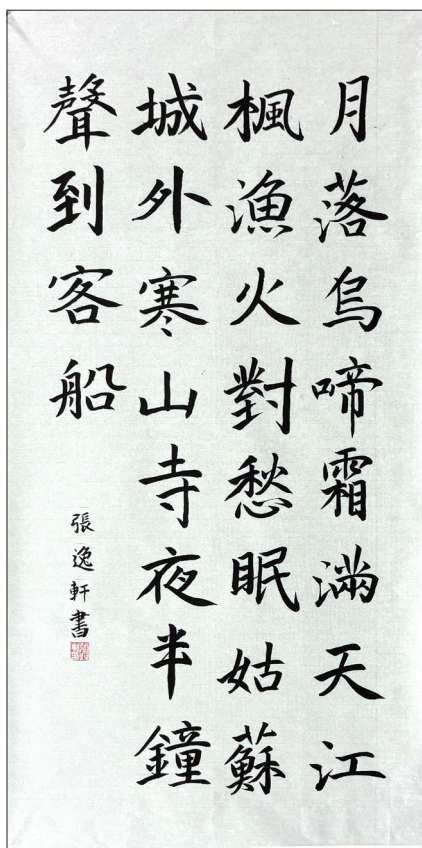 月落烏啼霜滿天江
楓漁火對愁眠姑蘇
城外寒山寺夜半鐘
聲到客船
張逸軒書